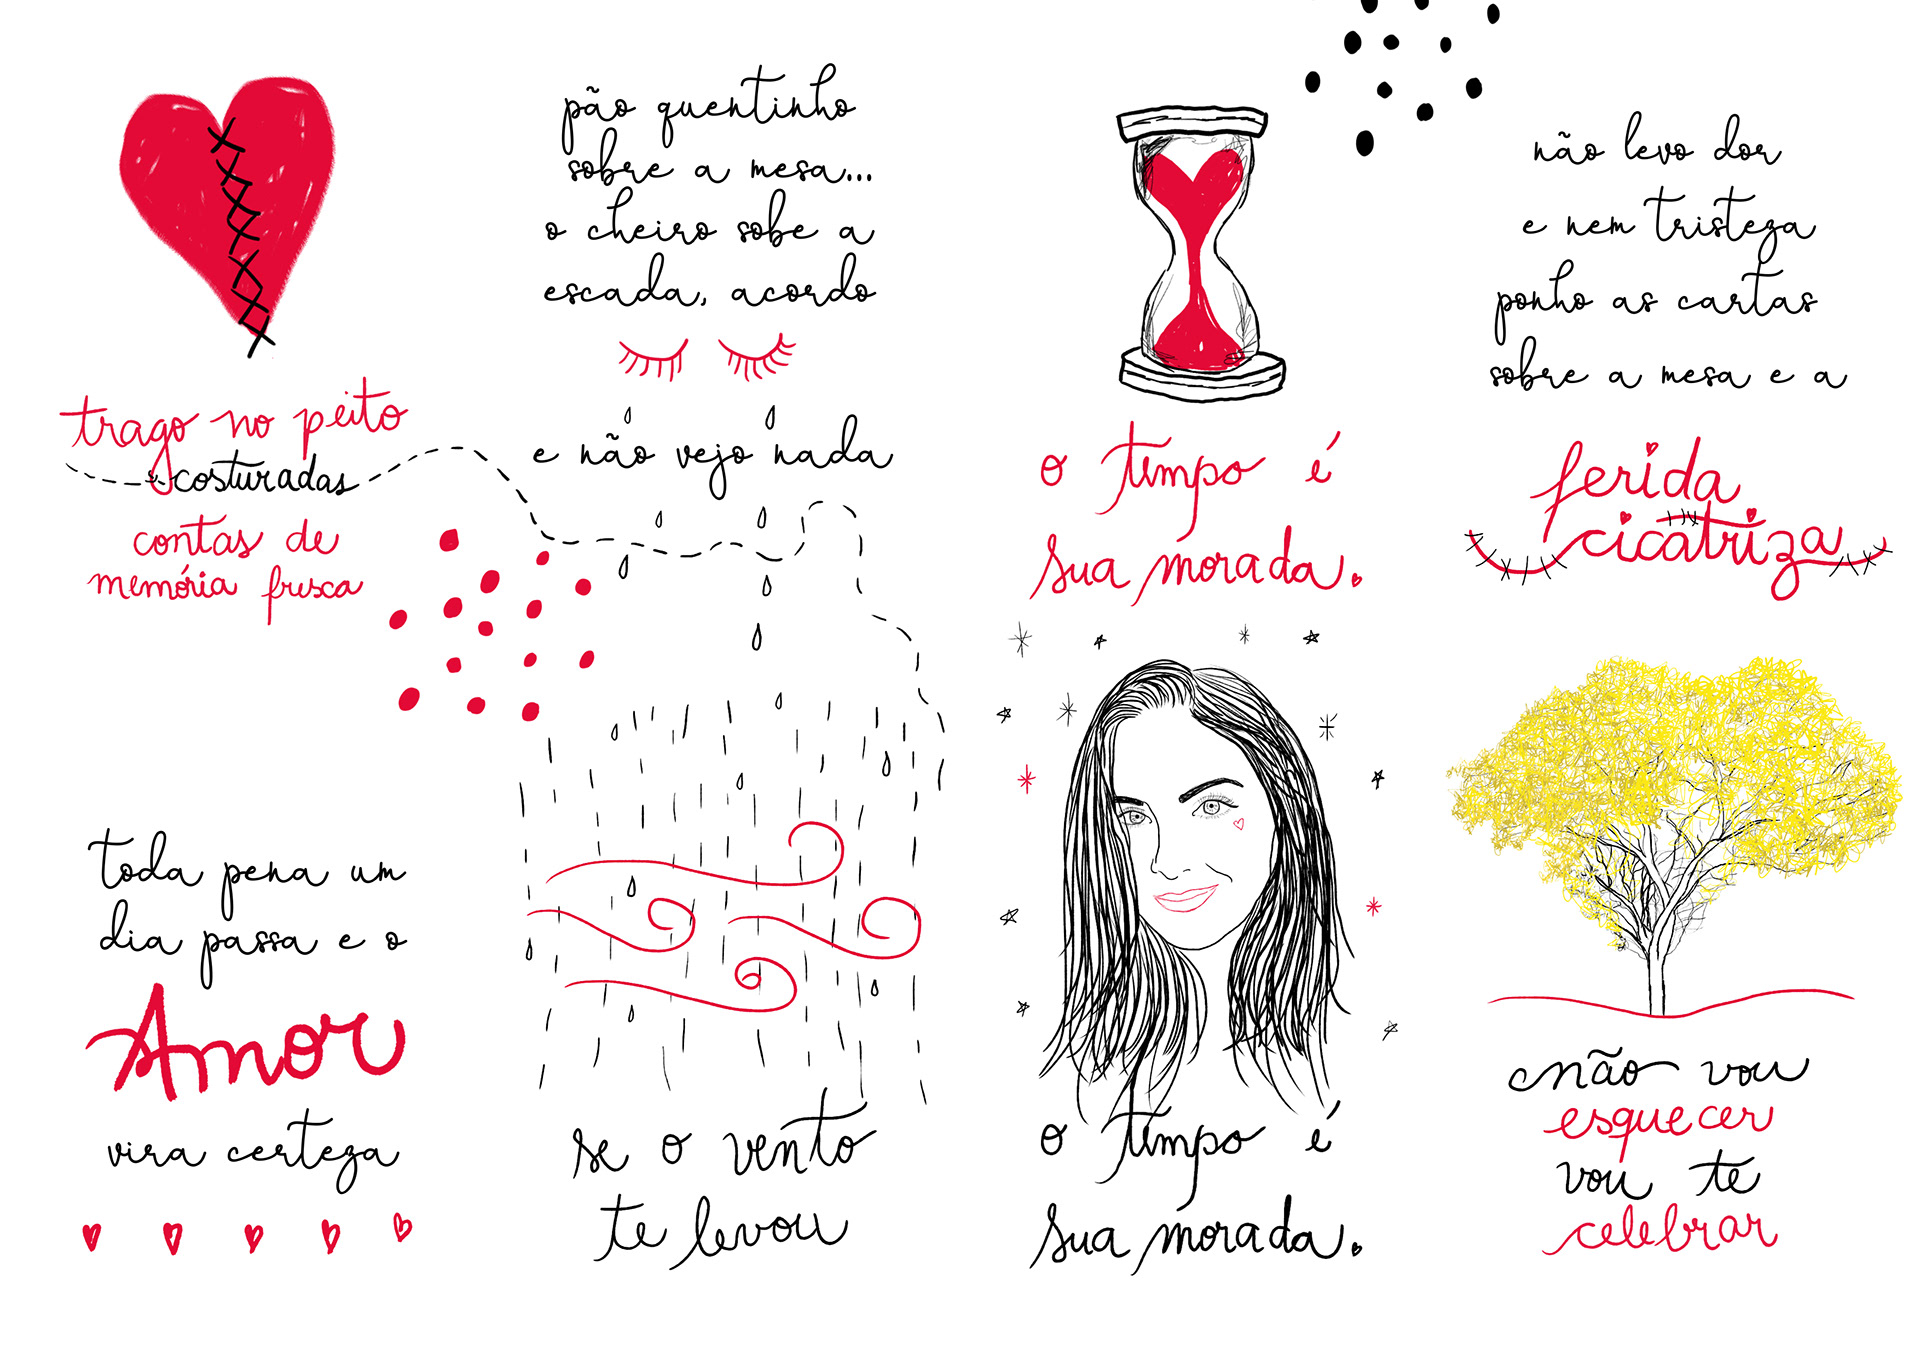 trago no peito
costuradas
contas de
memória fresca
toda pena um
dia passa e o
Amor
vira certeza
pão quentinho
sobre a mesa...
o cheiro sobe a
escada, acordo
e não vejo nada
se o vento
te levou
o tempo é
sua morada.
o tempo é
sua morada.
não levo dor
e nem tristeza
ponho as cartas
sobre a mesa e a
ferida
cicatriza
não vou
esquecer
vou te
celebrar